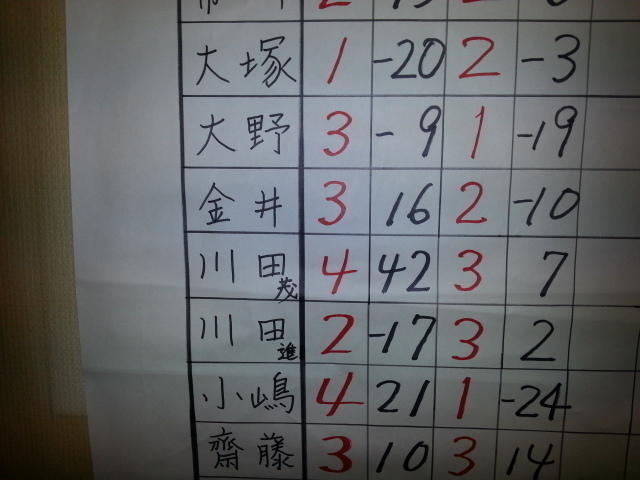 大塚 1 -20 2 -3
大野 3 -9 1 -19
金井 3 16 2 -10
川田茂 4 42 3 7
川田進 2 -17 3 2
小嶋 4 21 1 -24
齋藤 3 10 3 14